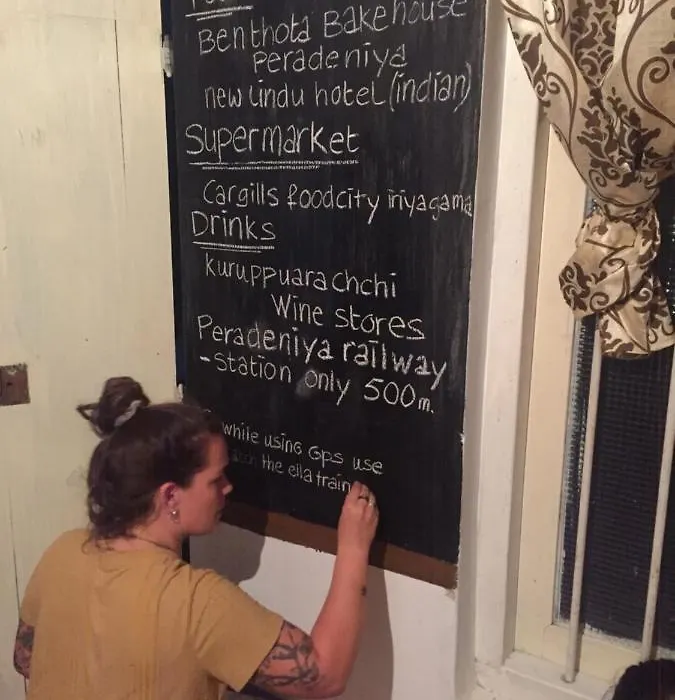 Benthota Bakehouse
Peradeniya
new lindu hotel (indian)
Supermarket
Cargills foodcity iriyagama
Drinks
kuruppuarachchi
Wine stores
Peradeniya railway
-station only 500m.
while using Gps use
the ella train